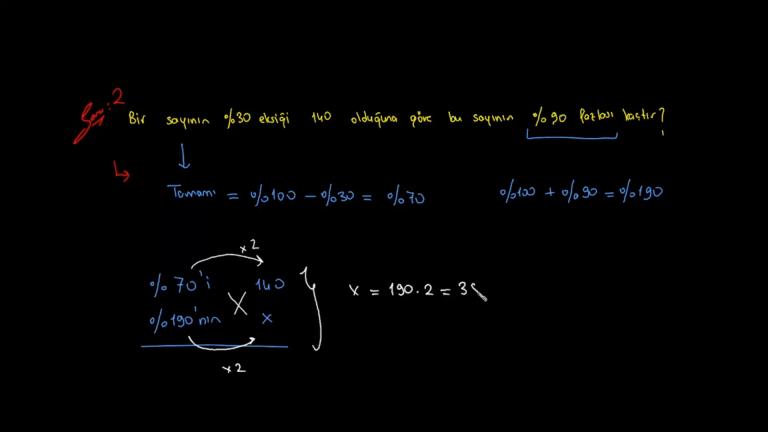 Soru: 2
Bir sayının %30 eksiği 140 olduğuna göre bu sayının %90 fazlası kaçtır?
Tamamı = %100 - %30 = %70
%100 + %90 = %190
x2
%70'i 140
%190'nın x
x2
x = 190.2 = 3